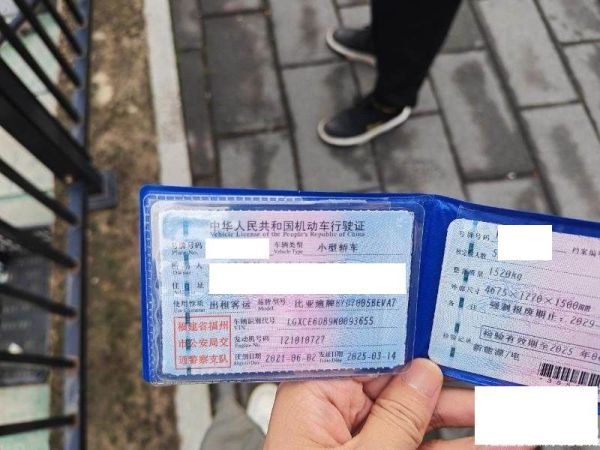 中华人民共和国机动车行驶证
Vehicle License of the People's Republic of China
号牌号码
车辆类型 小型轿车
Vehicle Type
住
使用性质 出租客运 品牌型号 比亚迪牌BYD7005BEVA7
Model
福建省福州
市公安局交
通警察支队
车辆识别代号
发动机号码 121018727
注册日期 2021-06-02 发证日期 2025-03-14
号牌号码
档案编
整备质量 1520kg
外廓尺寸 4675×1770×1500
备 注 强制报废期止:2029-
检验有效期至2025 年
检验记录 新能源/电